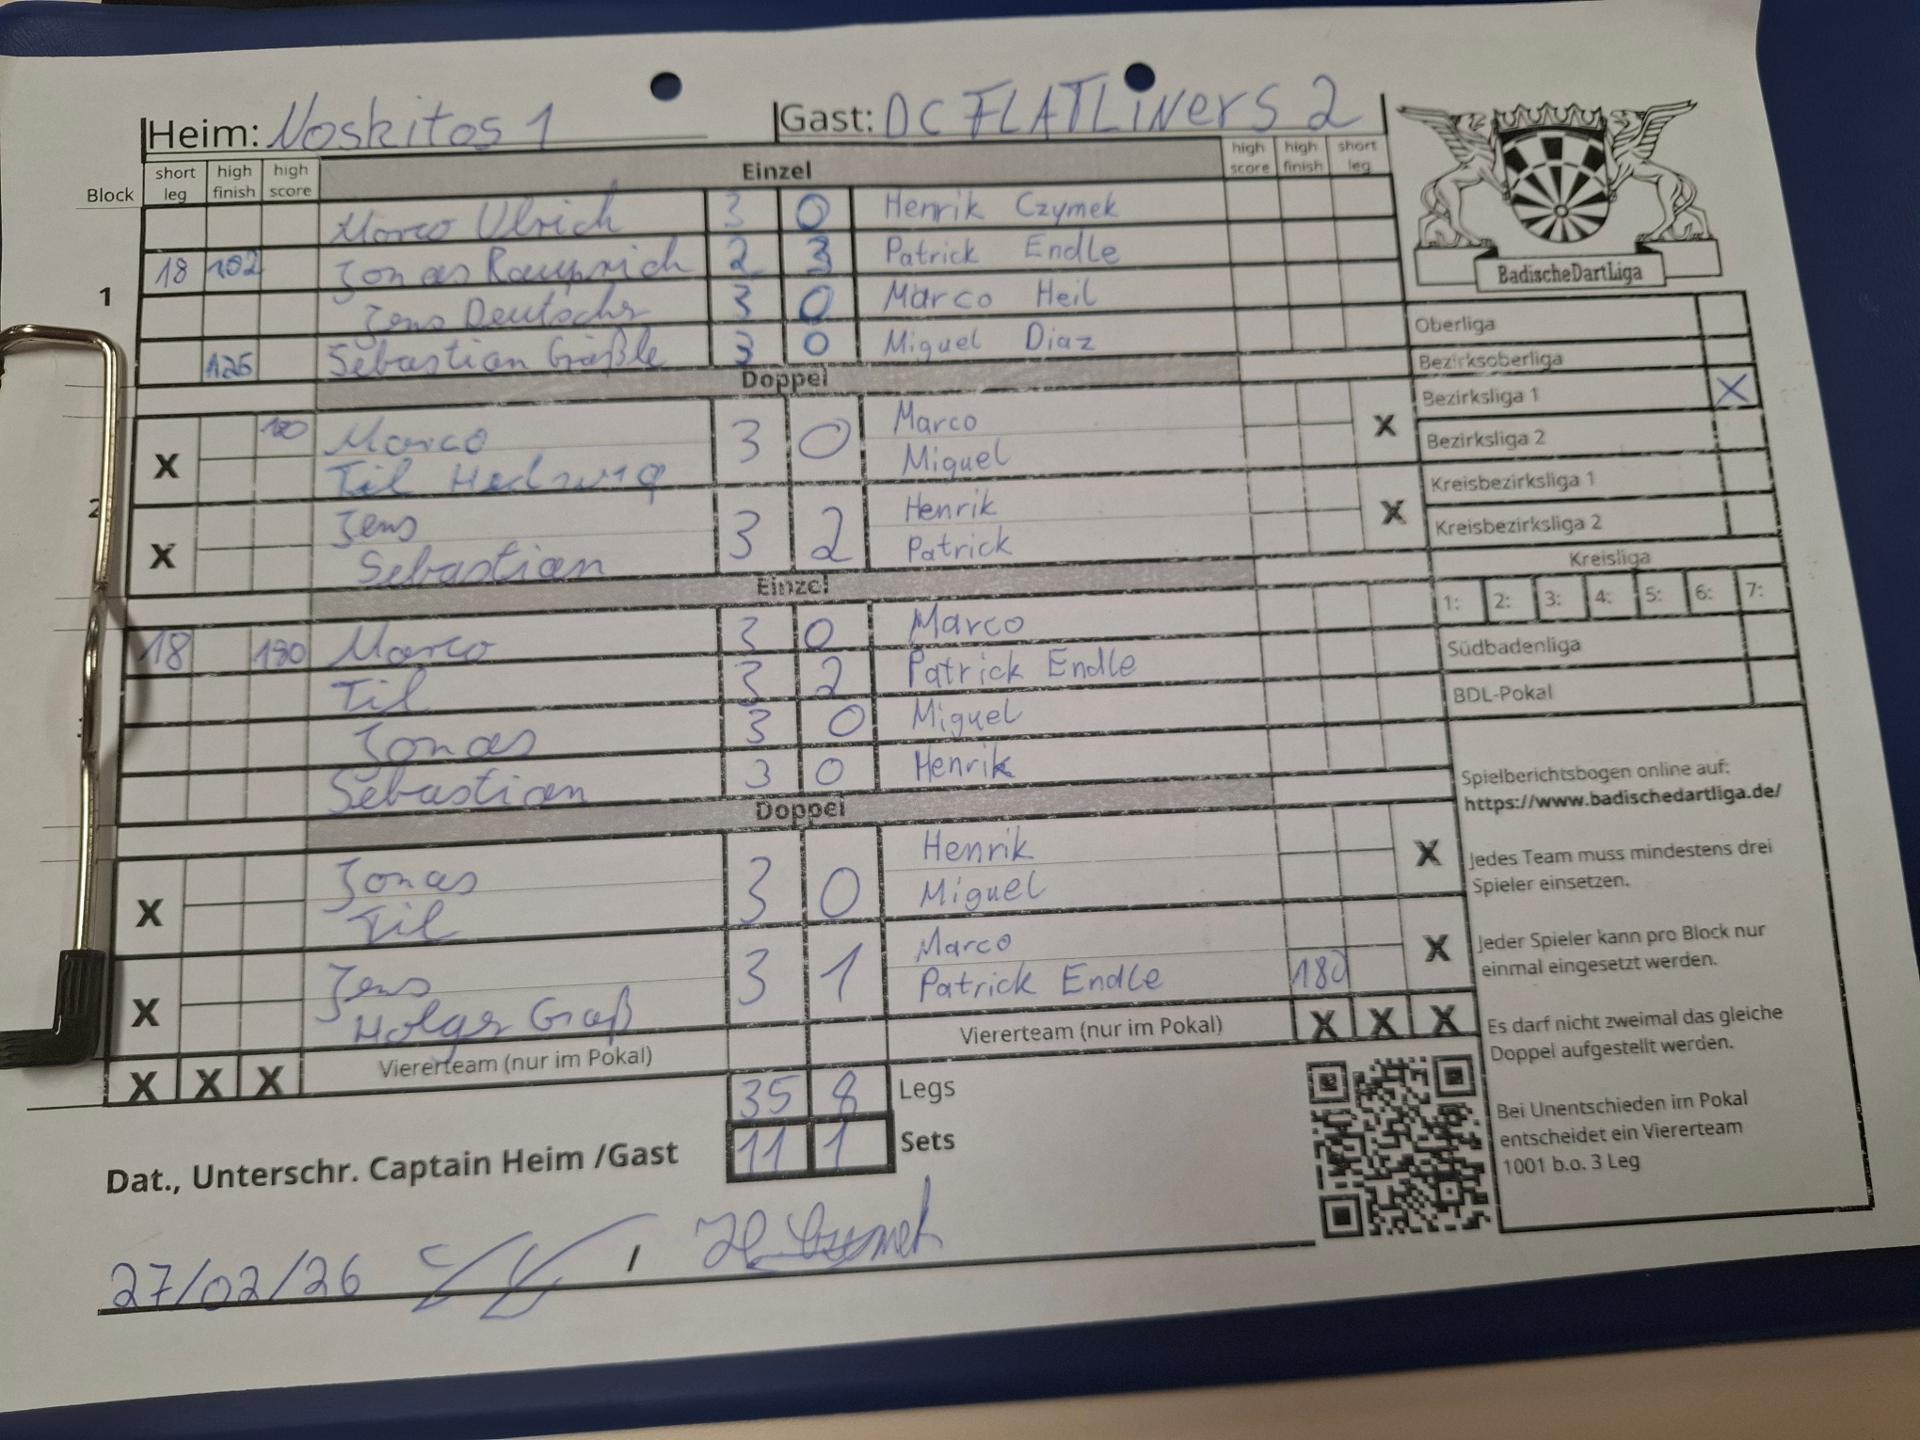 Heim: Noskitos 1 Gast: DC FLATLiNers 2
Block short leg high finish high score Einzel high score high finish short leg
Marco Ulrich 3 0 Henrik Czymek
18 102 Jonas Rauprich 2 3 Patrick Endle
1
Jens Deutscher 3 0 Marco Heil
126 Sebastian Gräßle 3 0 Miguel Diaz
Doppel
X 180 Marco 3 0 Marco X
Til Hedwig Miguel
2
X Jens 3 2 Henrik X
Sebastian Patrick
Einzel
18 180 Marco 3 0 Marco
Til 3 2 Patrick Endle
Jonas 3 0 Miguel
Sebastian 3 0 Henrik
Doppel
X Jonas 3 0 Henrik X
Til Miguel
X Jens 3 1 Marco X
Holger Graß Patrick Endle 180
X X X Viererteam (nur im Pokal) Viererteam (nur im Pokal) X X X
35 8 Legs
11 1 Sets
Dat., Unterschr. Captain Heim /Gast
27/02/26 /
BadischeDartLiga
Oberliga
Bezirksoberliga
Bezirksliga 1 X
Bezirksliga 2
Kreisbezirksliga 1
Kreisbezirksliga 2
Kreisliga
1: 2: 3: 4: 5: 6: 7:
Südbadenliga
BDL-Pokal
Spielberichtsbogen online auf:
https://www.badischedartliga.de/
Jedes Team muss mindestens drei
Spieler einsetzen.
Jeder Spieler kann pro Block nur
einmal eingesetzt werden.
Es darf nicht zweimal das gleiche
Doppel aufgestellt werden.
Bei Unentschieden im Pokal
entscheidet ein Viererteam
1001 b.o. 3 Leg